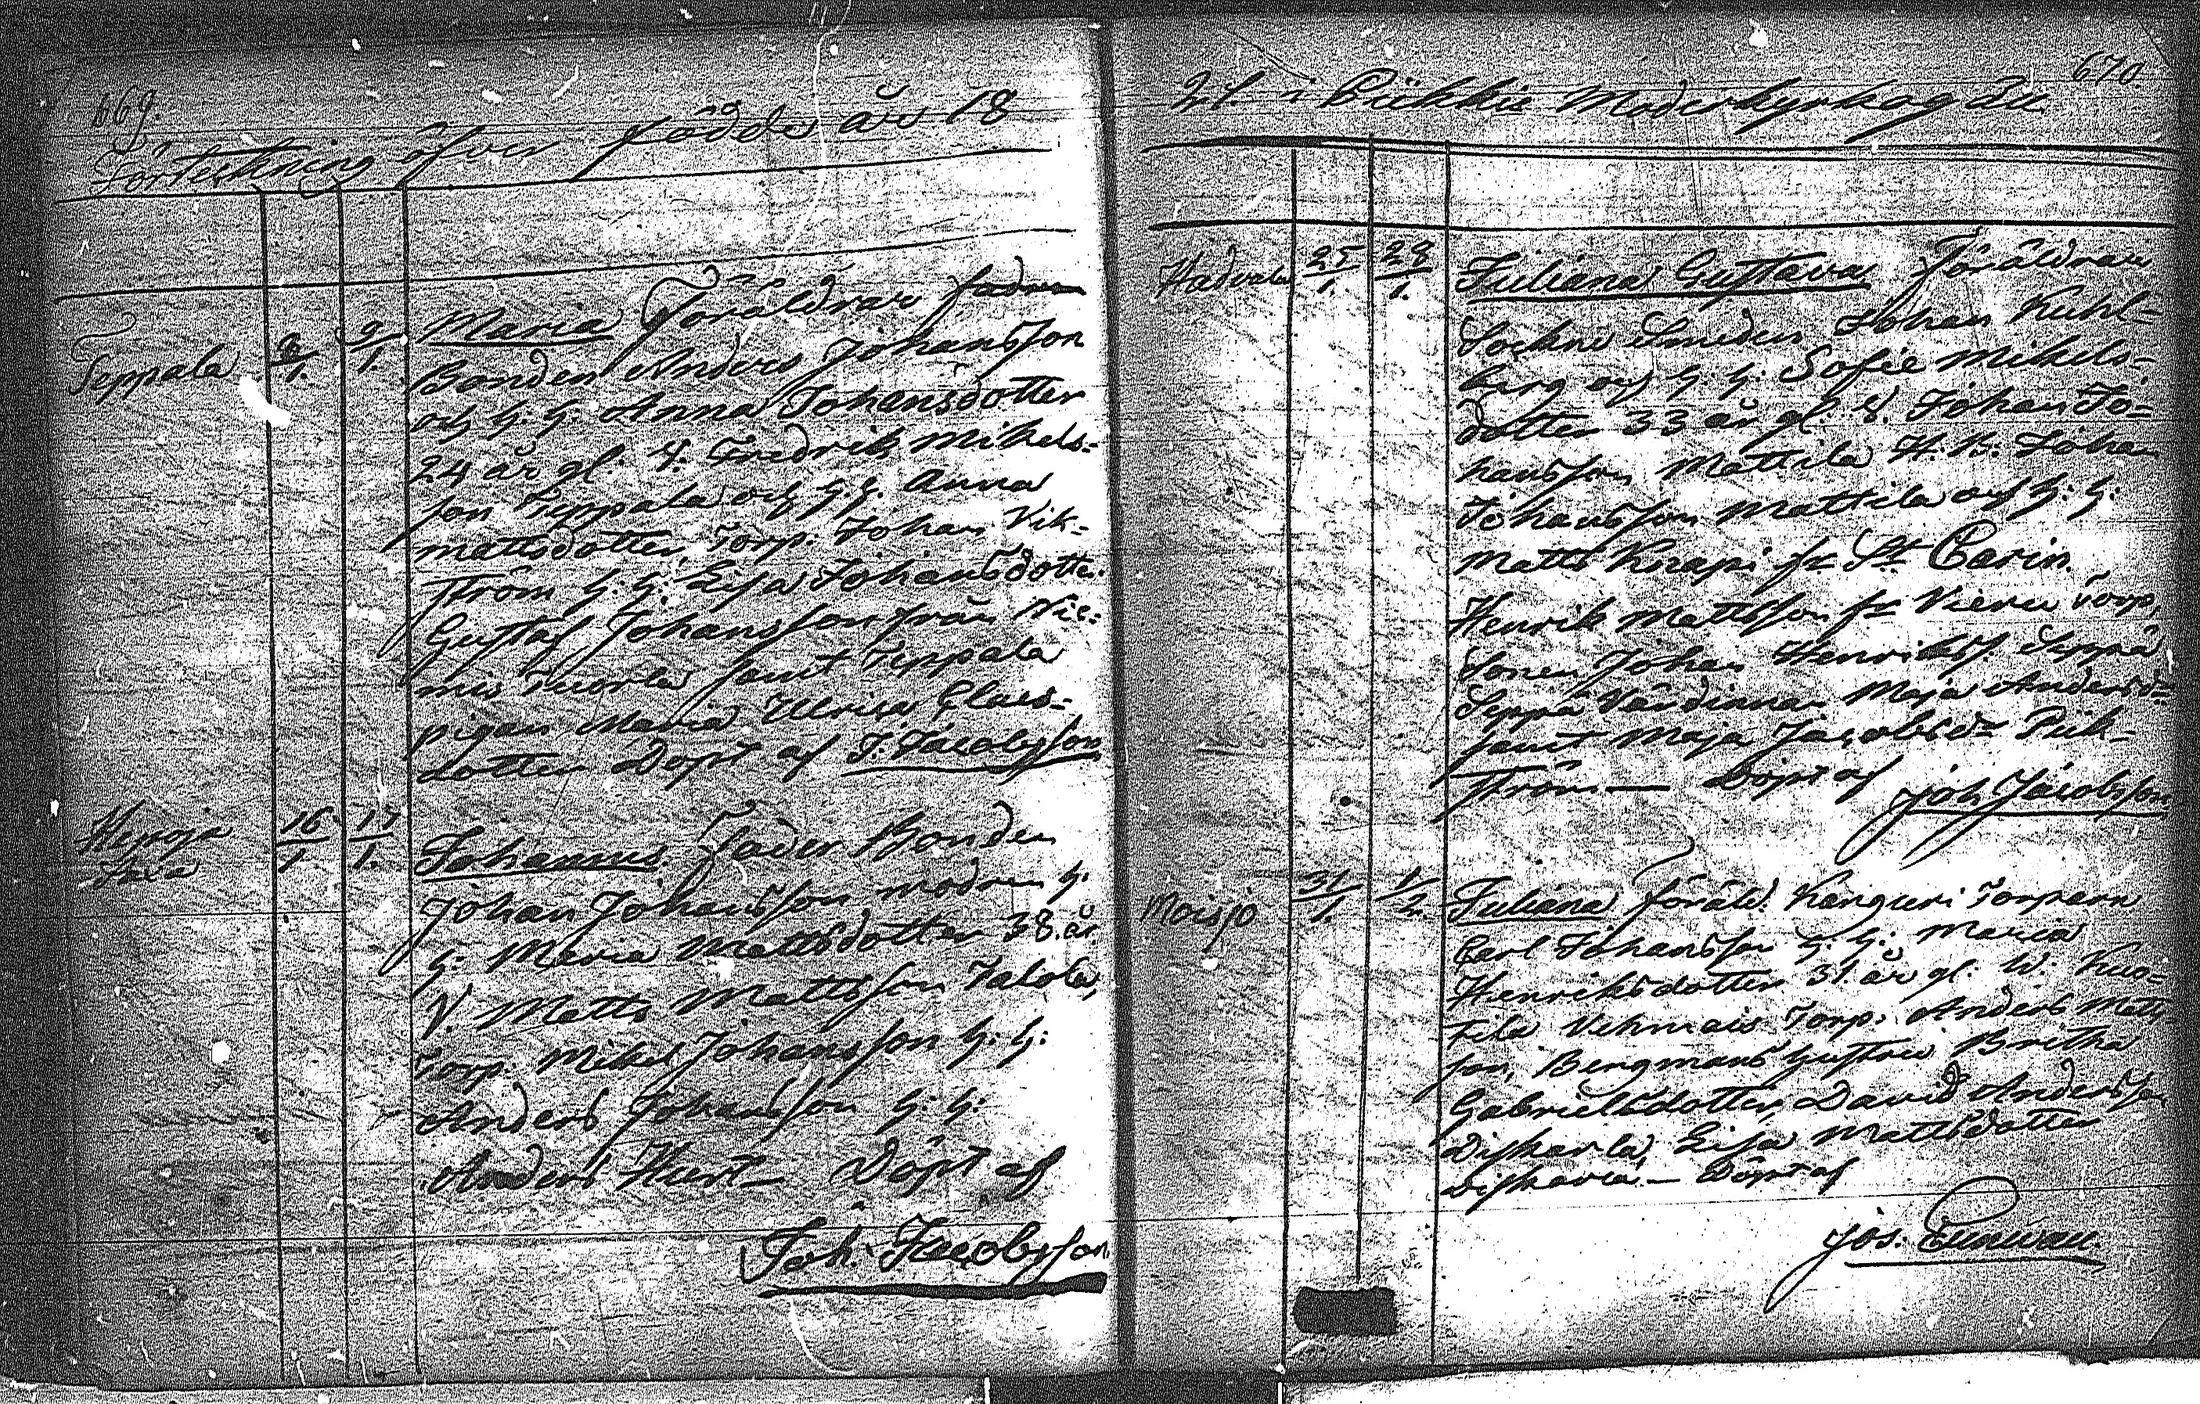 669.
Förteckning öfver födde års 18
Teppala 8/1. 9/1. Maria Föräldrar fadren
Bonden Anders Johansson
och h. h. Anna Johansdotter
24 år gl. V. Fredrik Mikels-
son Teppala och h. h. Anna
mattsdotter, Torp. Johan Vik-
ström h. h. Lisa Johansdotter.
Gustaf Johansson från Nie-
mis samt Teppala
pigan Maria Ulrica Claes-
dotter Döpt af J. Jacobsson
16/1 17/1. Johannes Fader Bonden
Johan Johansson modren h.
h. Maria Mattsdotter 38. år
V. Matts Mattsson Talola,
Torp. Mikel Johansson h. h.
Anders Johansson h. h.
Anders Hurt — Döpt af
Joh. Jacobsson
670.
i Piikkis Moderkyrkog
25/1. 28/1. Juliana Gustava Föräldrar
Sockne Smeden Johan Kuhl-
berg och h. h. Sofie Mikels-
dotter 33 år gl. V. Johan Jo-
hansson Mattila H. B. Johan
Johansson Mattila och h. h.
Matts Knapi fr St Carin.
Henrik Mattsson fr Vieru Torp,
Sonen Johan Henrikss. Seppä
Seppä Värdinna Maja Andersdr
samt Maja Jacobsdr Piik-
ström — Döpt af
Joh. Jacobsson
Moisjo 31/1. 1/2. Juliana föräld. Kanguri Torparn
Carl Johansson h. h: Maria
Henriksdotter 31 år gl. W. Kus-
tila Vehmais Torp. Anders Matts
son, Bergmans hustru Britha
Gabrielsdotter, David Andersson
Diskarla, Lisa Mattsdotter
Döpt af
Jos.